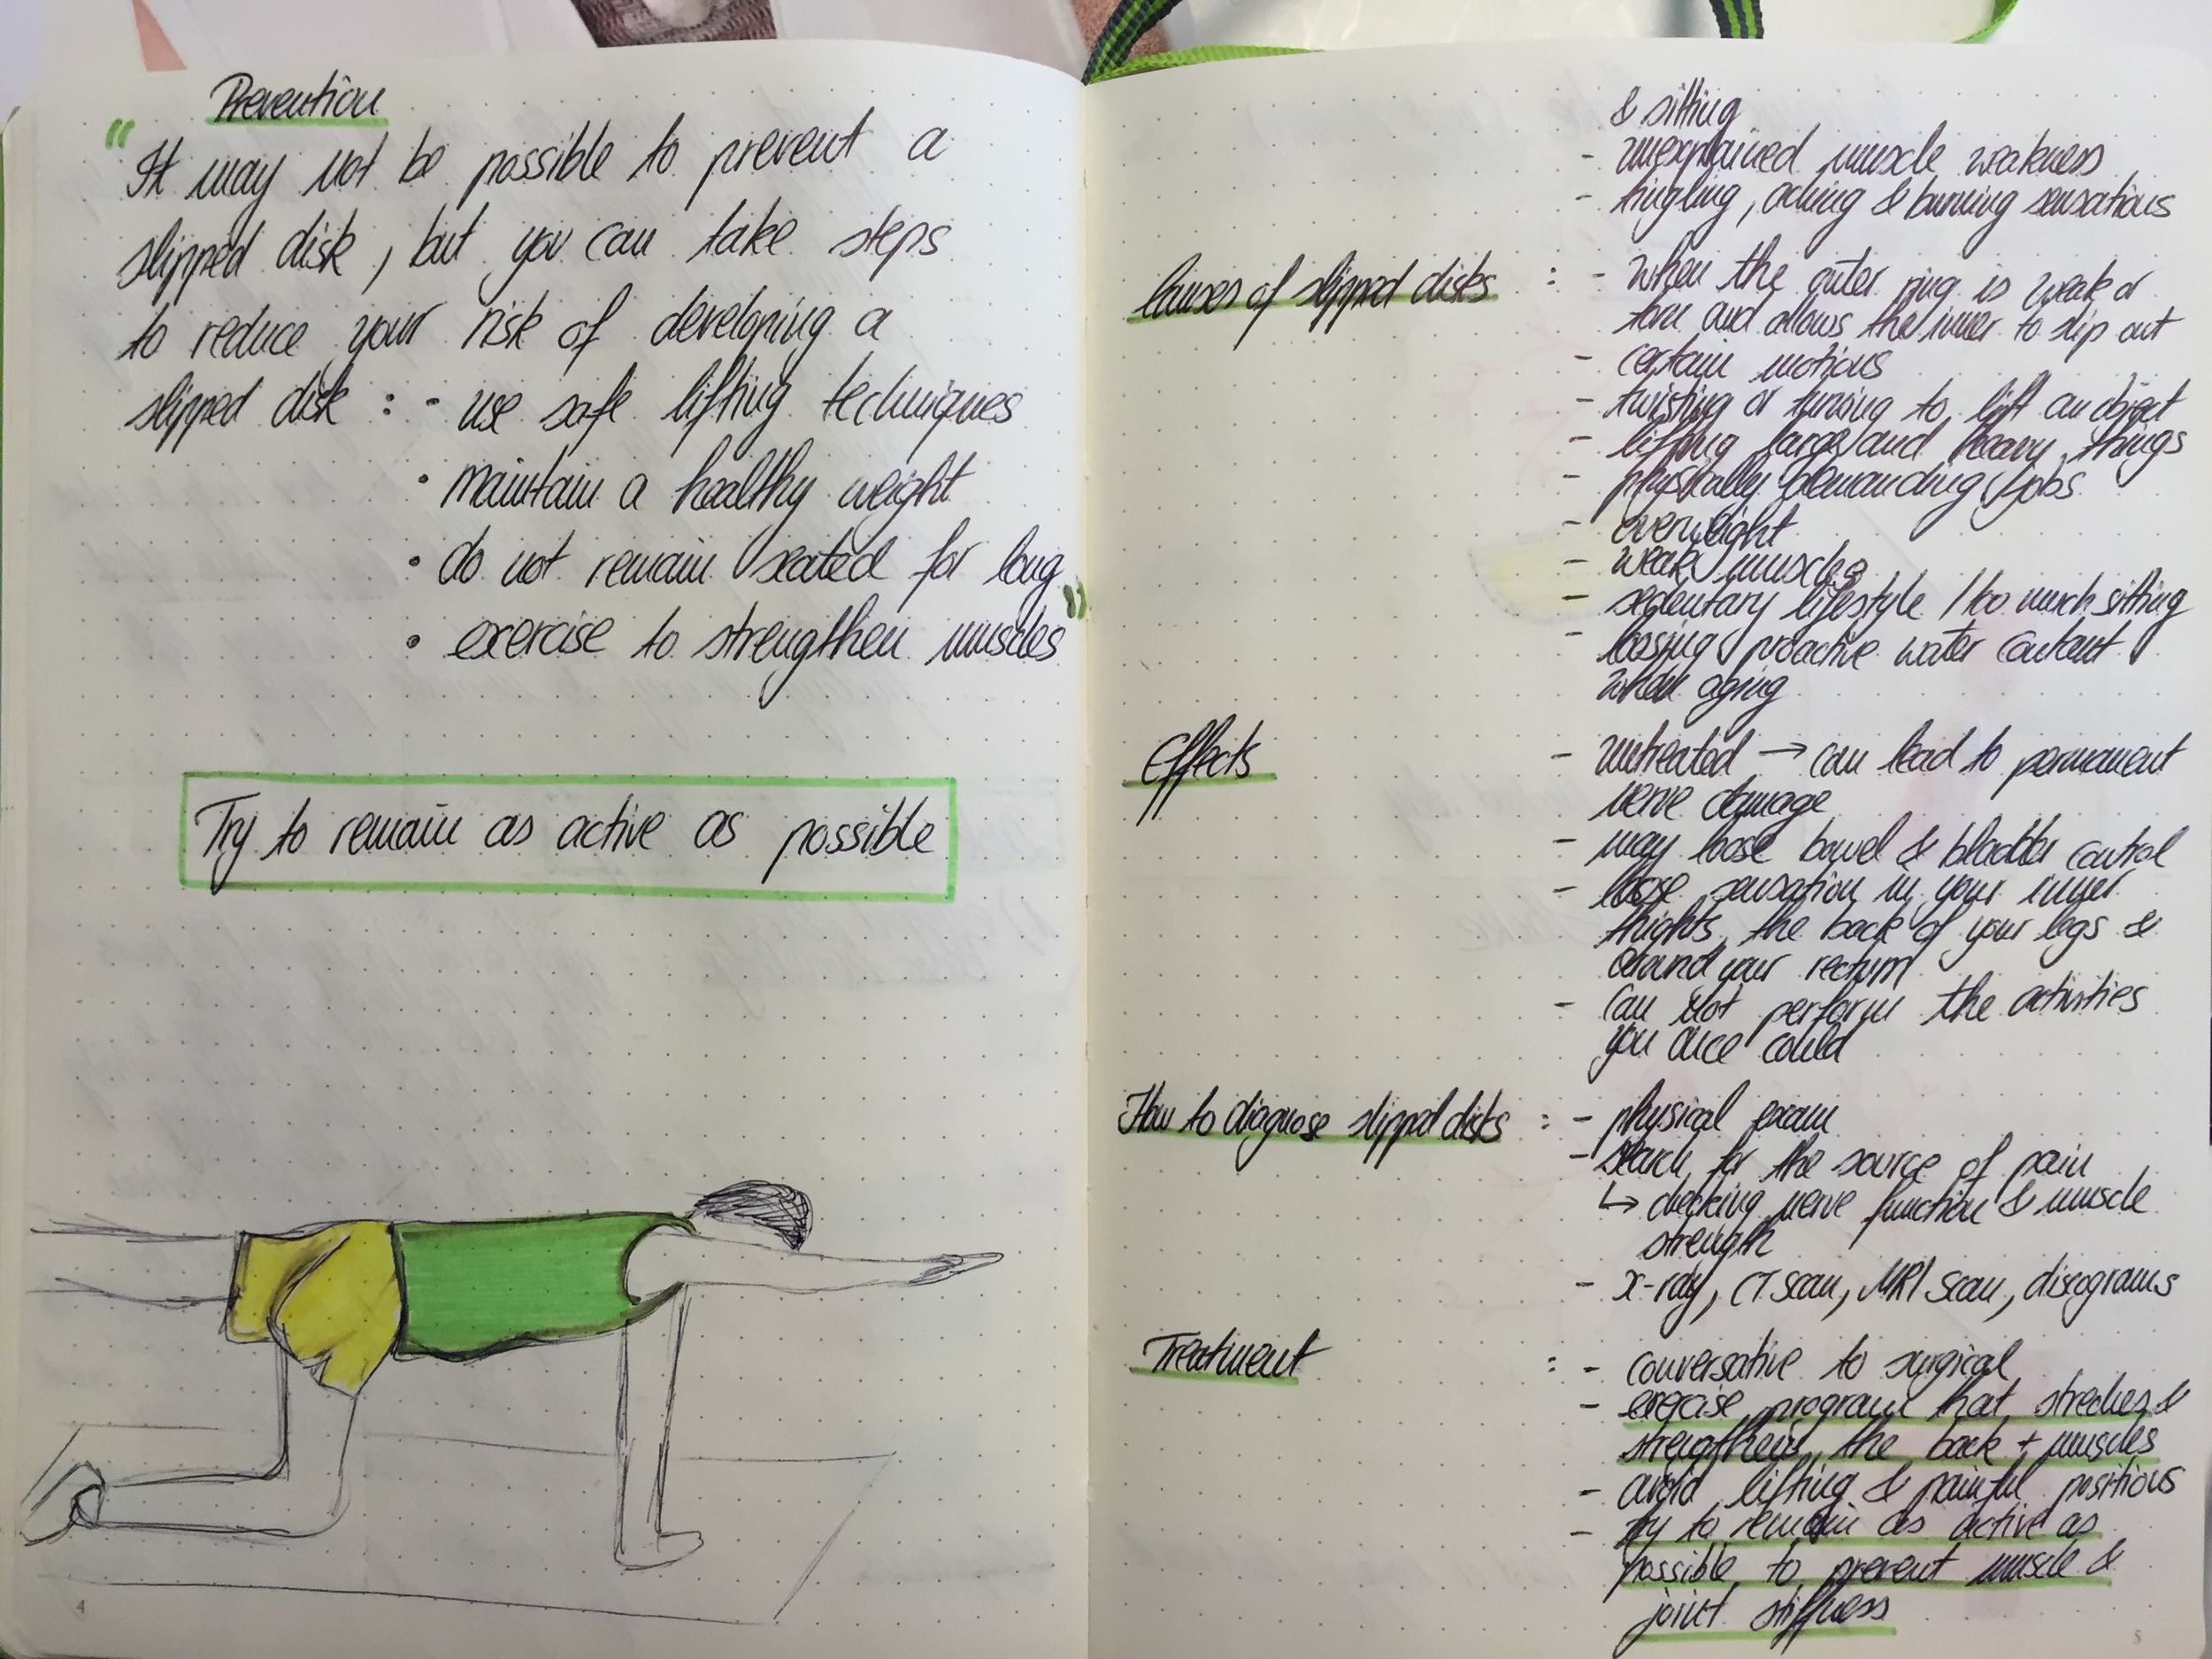 Prevention
"It may not be possible to prevent a
slipped disk, but you can take steps
to reduce your risk of developing a
slipped disk : - use safe lifting techniques
• maintain a healthy weight
• do not remain seated for long
• exercise to strengthen muscles"
Try to remain as active as possible
4
& sitting
- unexplained muscle weakness
- tingling, aching & burning sensations
Causes of slipped disks : - when the outer ring is weak or
torn and allows the inner to slip out
- certain motions
- twisting or turning to lift an object
- lifting large and heavy things
- physically demanding jobs
- overweight
- weak muscles
- sedentary lifestyle / too much sitting
- loosing proactive water content
when aging
Effects - untreated → can lead to permanent
nerve damage
- may loose bowel & bladder control
- loose sensation in your inner
thights, the back of your legs &
around your rectum
- can not perform the activities
you once could
How to diagnose slipped disks : - physical exam
- search for the source of pain
↳ checking nerve function & muscle
strength
- x-ray, CT scan, MRI scan, discograms
Treatment : - conversative to surgical
- exercise program that streches &
strengthens the back + muscles
- avoid lifting & painful positions
- try to remain as active as
possible to prevent muscle &
joint stiffness
5